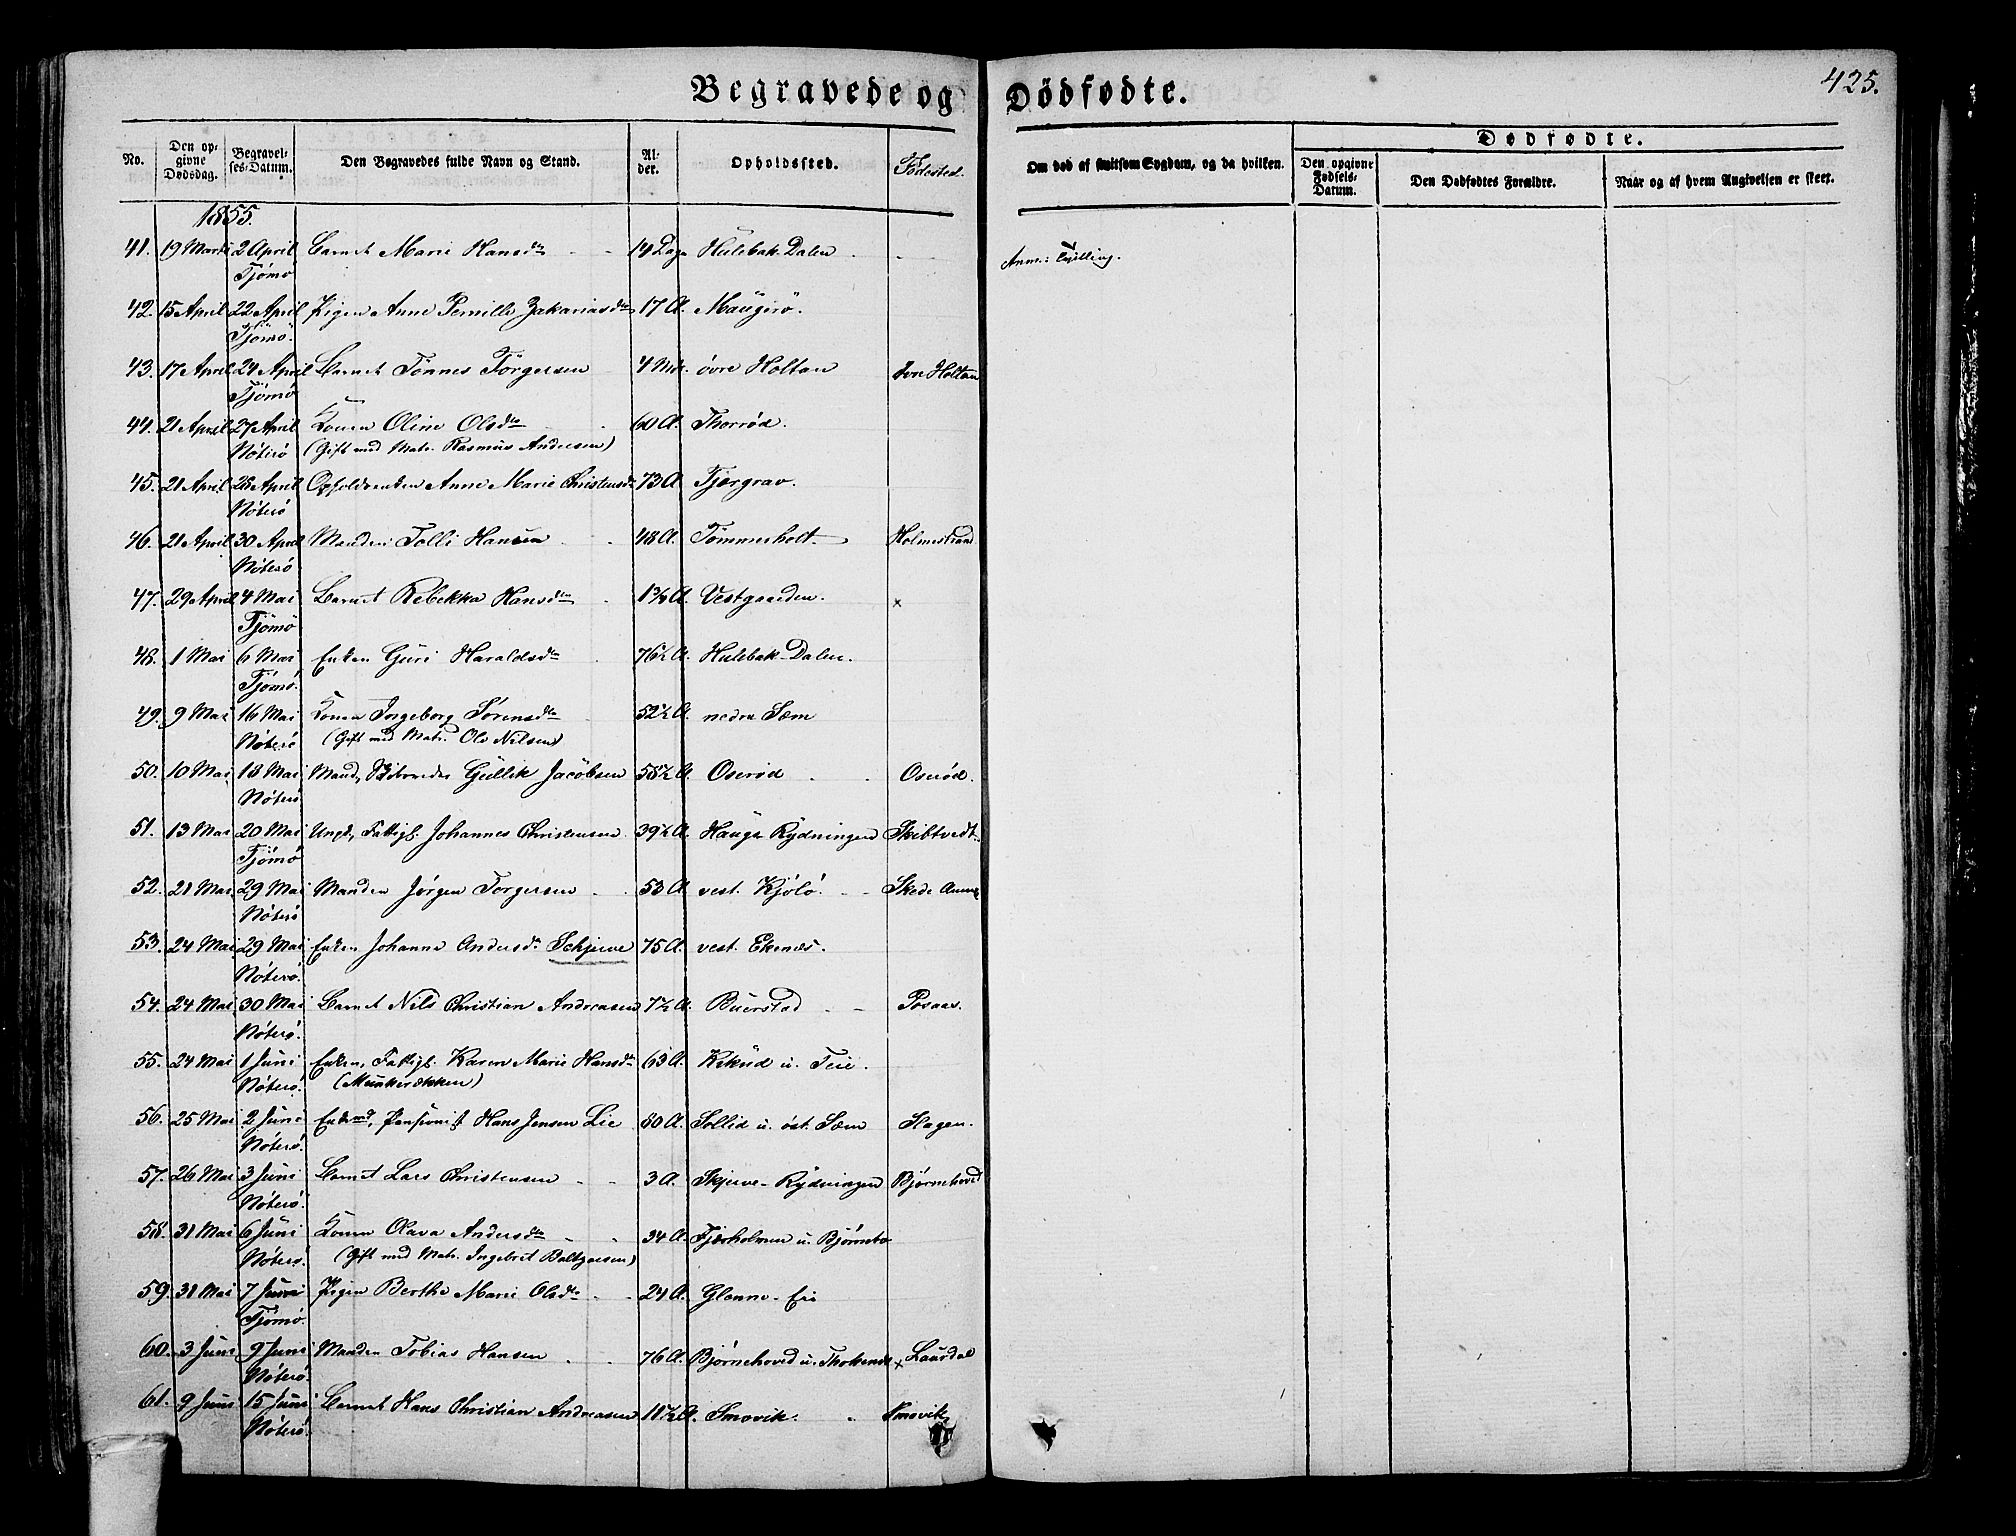 Begravede og Dödfødte.
425.
No.
Den opgivne Dødsdag.
Begravelses-Datum.
Den Begravedes fulde Navn og Stand.
Alder.
Opholdssted.
Fødested.
Om død af smitsom Sygdom, og da hvilken.
Dødfødte.
Den opgivne Fødsels-Datum.
Den Dødfødtes Forældre.
Naar og af hvem Angivelsen er skeet.
1855.
41. 19 Marts 2 April Barnet Marie Hansdtr 14 Dage Hulebak-Dalen Anm: Tvilling.
Tjømø
42. 15 April 22 April Pigen Anne Pernille Zakariasdtr 17 A. Maugerø.
Tjømø.
43. 17 April 24 April Barnet Tønnes Törgersen 4 Mdr. övre Holtan övre Holtan
Tjømø
44. 21 April 27 April Konen Oline Olsdtr 60 A. Thorrød.
Nöterö (Gift med Matr. Rasmus Andersen)
45. 21 April 28 April Opholdsenken Anne Marie Christensdtr 73 A. Tjærgrav.
Nöterö
46. 21 April 30 April Manden Tolli Hansen 48 A. Tömmerholt. Holmestrand
Nöterö
47. 29 April 4 Mai Barnet Rebekka Hansdtr Vestgaarden. x
Tjömö
48. 1 Mai 6 Mai Enken Guri Haraldsdtr 76½ A. Hulebak-Dalen.
Tjömö.
49. 9 Mai 16 Mai Konen Ingeborg Sörensdtr 52½ A. nedre Sæm
Nöterö (Gift med Matr. Ole Nilsen)
50. 10 Mai 18 Mai Mand, Gullik Jacobsen 58½ A. Oserød Oserød.
Nöterö
51. 13 Mai 20 Mai Ungk, Fattigl. Johannes Christensen 39½ A. Hauge Rydningen Skibtvedt.
Tjömö
52. 21 Mai 29 Mai Manden Jörgen Torgersen 53 A. vest. Kjölö. Skede
Nöterö
53. 24 Mai 29 Mai Enken Johanne Andersdtr Schjerve 75 A. vest. Ekenæs.
Nöterö.
54. 24 Mai 30 Mai Barnet Nils Christian Andreasen 7½ A. Buerstad Rosaas.
Nöterö.
55. 24 Mai 1 Juni Enken, Fattigl. Karen Marie Hansdtr 63 A. Kikud u. Teie.
Nöterö. (Munkerækken)
56. 25 Mai 2 Juni Enkemd, Pensionist Hans Jensen Lie 80 A. Sollid u. öst. Sæm Slagen.
Nöterö.
57. 26 Mai 3 Juni Barnet Lars Christensen 3 A. Skjerve-Rydningen Bjørnehoved
Nöterö.
58. 31 Mai 6 Juni Konen Olava Andersdtr 34 A. Fjærholmen u. Bjørnebo
Nöterö. (Gift med Matr. Ingebret Baltzersen)
59. 31 Mai 7 Juni Pigen Berthe Marie Olsdtr 24 A. Glenne-Eie
Tjömö.
60. 3 Juni 9 Juni Manden Tobias Hansen 76 A. Bjørnehoved u. x Laurdal
Nöterö.
61. 9 Juni 15 Juni Barnet Hans Christian Andreasen 11½ A. Smovik. Smovik
Nöterö.